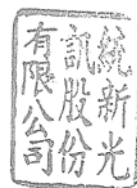 統新光
訊股份
有限公司